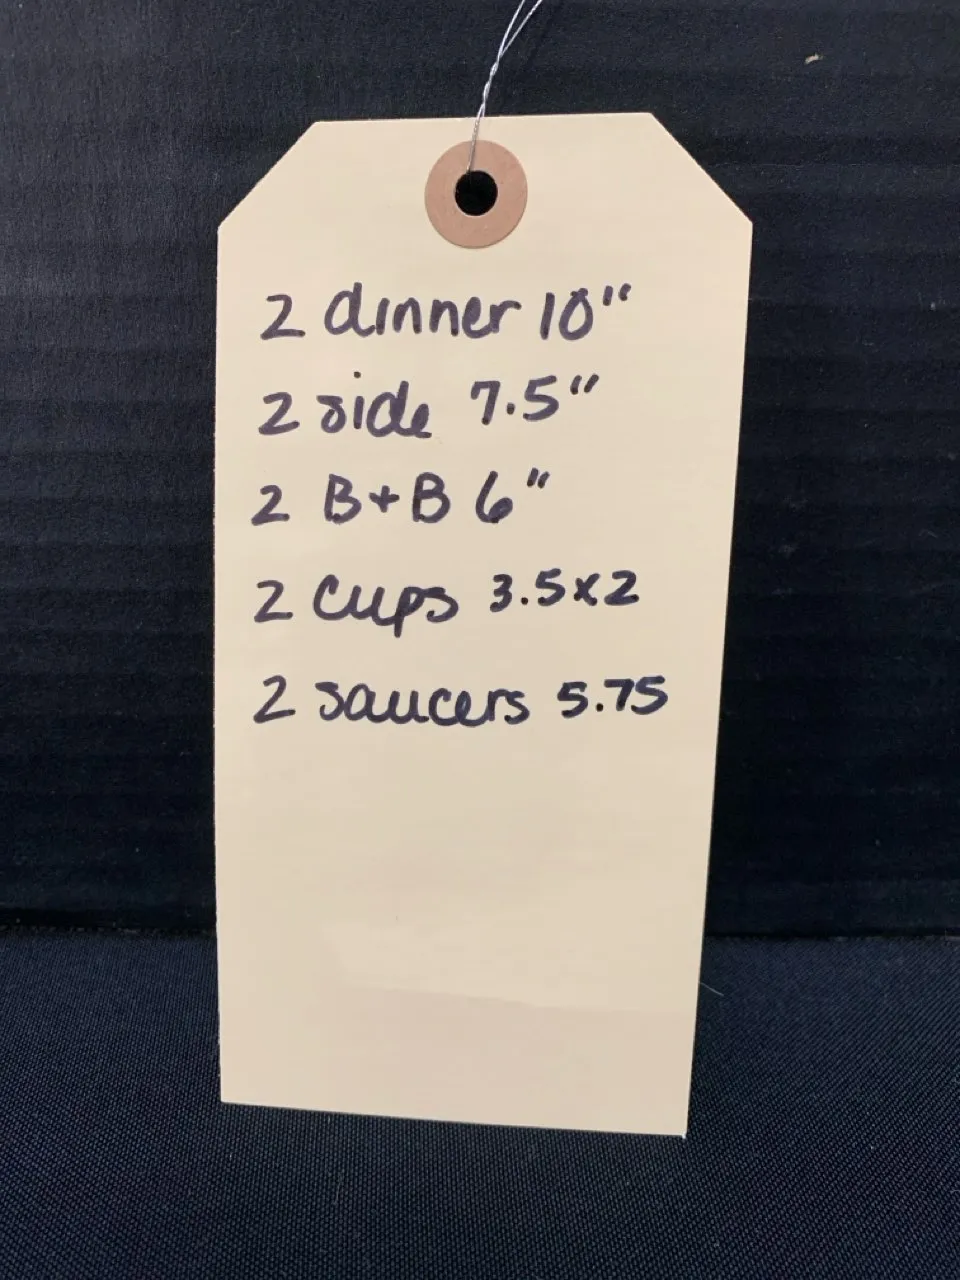 2 dinner 10"
2 side 7.5"
2 B+B 6"
2 Cups 3.5x2
2 saucers 5.75